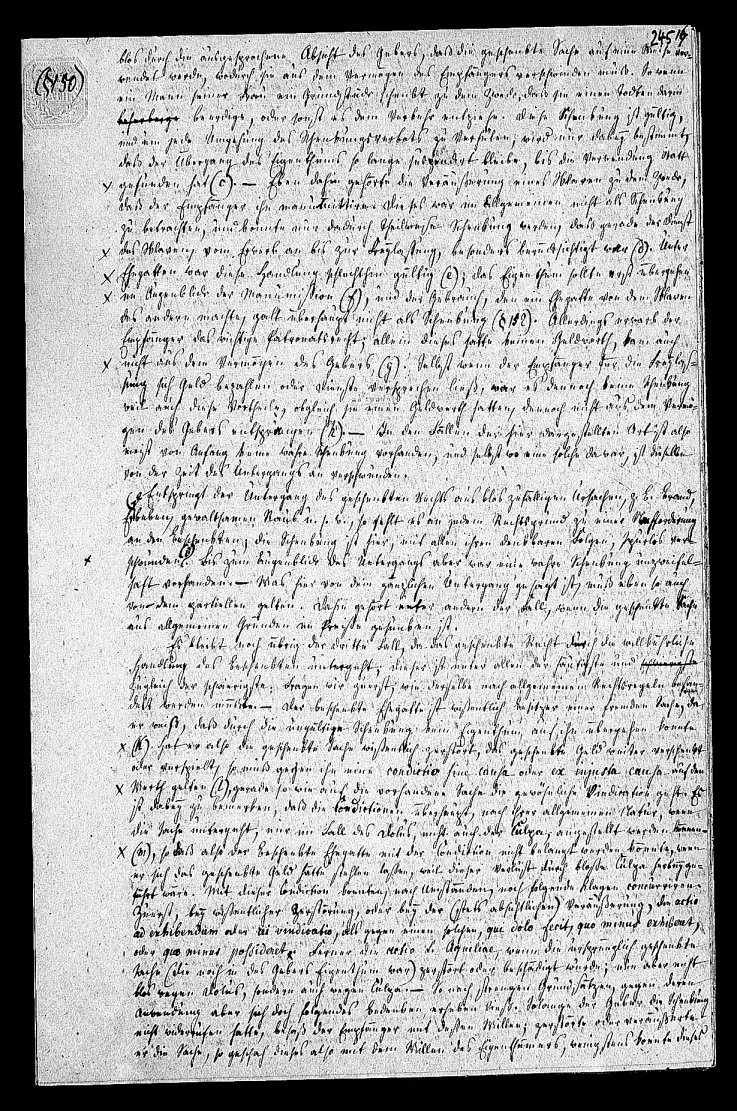 245 19
(§150)
blos durch die ausgesprochene Absicht des Gebers, daß die geschenkte Sache auf eine Weise ver-
wendet werde, wodurch sie aus dem Vermögen des Empfängers verschwinden muß. So wenn
ein Mann seiner Frau ein Grundstück schenkt zu dem Zweck, daß sie einen Todten darin
beerdige, oder sonst es dem Verkehr entziehe. Diese Schenkung ist gültig,
und um jede Umgehung des Schenkungsverbots zu verhüten, wird nur dabey bestimmt,
daß der Übergang des Eigenthums so lange suspendirt bleibe, bis die Verwendung statt
gefunden hat (c). — Eben dahin gehörte die Veräußerung eines Sklaven zu dem Zweck,
daß der Empfänger ihn manumittire. Dieses war im Allgemeinen nicht als Schenkung
zu betrachten, und konnte nur dadurch theilweise Schenkung werden, daß gerade der Dienst
des Sklaven, vom Erwerb an bis zur Freylassung, besonders berücksichtigt war (d). Unter
Ehegatten war diese Handlung schlechthin gültig (e); das Eigenthum sollte erst übergehen
im Augenblick der Manumission (f), und der Gebrauch, den ein Ehegatte von dem Sklaven
des andern machte, galt überhaupt nicht als Schenkung (§ 152). Allerdings erwarb der
Empfänger das wichtige Patronatsrecht; allein dieses hatte keinen Geldwerth, kam auch
nicht aus dem Vermögen des Gebers (g). Selbst wenn der Empfänger für die Freylas-
sung sich Geld bezahlen oder Dienste versprechen ließ, war es dennoch keine Schenkung
weil auch diese Vortheile, obgleich sie einen Geldwerth hatten, dennoch nicht aus dem Vermö-
gen des Gebers entsprangen (h). — In den Fällen der hier dargestellten Art ist also
meist von Anfang keine wahre Schenkung vorhanden, und selbst wo eine solche da war, ist dieselbe
von der Zeit des Untergangs an verschwunden.
Entspringt der Untergang des geschenkten Rechts aus blos zufälligen Ursachen, z. B. Brand,
Erdbeben, gewaltsamen Raub u. s. w., so fehlt es an jedem Rechtsgrund zu einer Rückforderung
an den Beschenkten; die Schenkung ist hier, mit allen ihren denkbaren Folgen, spurlos ver-
schwunden (i). Bis zum Augenblick des Untergangs aber war eine wahre Schenkung unzweifel-
haft vorhanden. — Was hier von dem gänzlichen Untergang gesagt ist, muß eben so auch
von dem partiellen gelten. Dahin gehört unter andern der Fall, wenn die geschenkte Sache
aus allgemeinen Gründen im Preise gesunken ist.
Es bleibt noch übrig der dritte Fall, da das geschenkte Recht durch die willkührliche
Handlung des Beschenkten untergeht; dieser ist unter allen der häufigste und
zugleich der schwierigste. Fragen wir zuerst, wie derselbe nach allgemeinen Rechtsregeln behan-
delt werden müßte. — Der beschenkte Ehegatte ist wissentlich Besitzer einer fremden Sache, da
er weiß, daß durch die ungültige Schenkung kein Eigenthum auf ihn übergehen konnte
(k). Hat er also die geschenkte Sache wissentlich zerstört, das geschenkte Geld weiter verschenkt
oder verspielt, so muß gegen ihn eine condictio sine causa oder ex injusta causa auf den
Werth gelten (l), gerade so wie auch die vorhandene Sache die gewöhnliche Vindication geht. Es
ist dabey zu bemerken, daß die Condictionen überhaupt, nach ihrer allgemeinen Natur, wenn
die Sache untergeht, nur im Fall des Dolus, nicht auch der Culpa, angestellt werden können
(m), so daß also der beschenkte Ehegatte mit der Condiction nicht belangt werden konnte, wenn
er sich das geschenkte Geld hatte stehlen lassen, weil dieser Verlust durch bloße Culpa herbeyge-
führt wäre. Mit dieser Condiction konnten, nach Umständen, noch folgende Klagen concurriren.
Zuerst, bey wissentlicher Zerstörung, oder bey der (stets absichtlichen) Veräußerung, die actio
ad exhibendum oder rei vindicatio, als gegen einen solchen, qui dolo fecit, quo minus exhiberet,
oder quo minus possideret. Ferner die actio L. Aquiliae, wenn die ursprünglich geschenkte
Sache (die noch in des Gebers Eigenthum war) zerstört oder beschädigt wurde; nun aber nicht
blos wegen Dolus, sondern auch wegen Culpa. — So nach strengen Grundsätzen, gegen deren
Anwendung aber sich doch folgendes Bedenken erheben ließe. Solange der Geber die Schenkung
nicht widerrufen hatte, besaß der Empfänger mit dessen Willen; zerstörte oder veräußerte
er die Sache, so geschah dieses also mit dem Willen des Eigenthümers, wenigstens konnte dieses